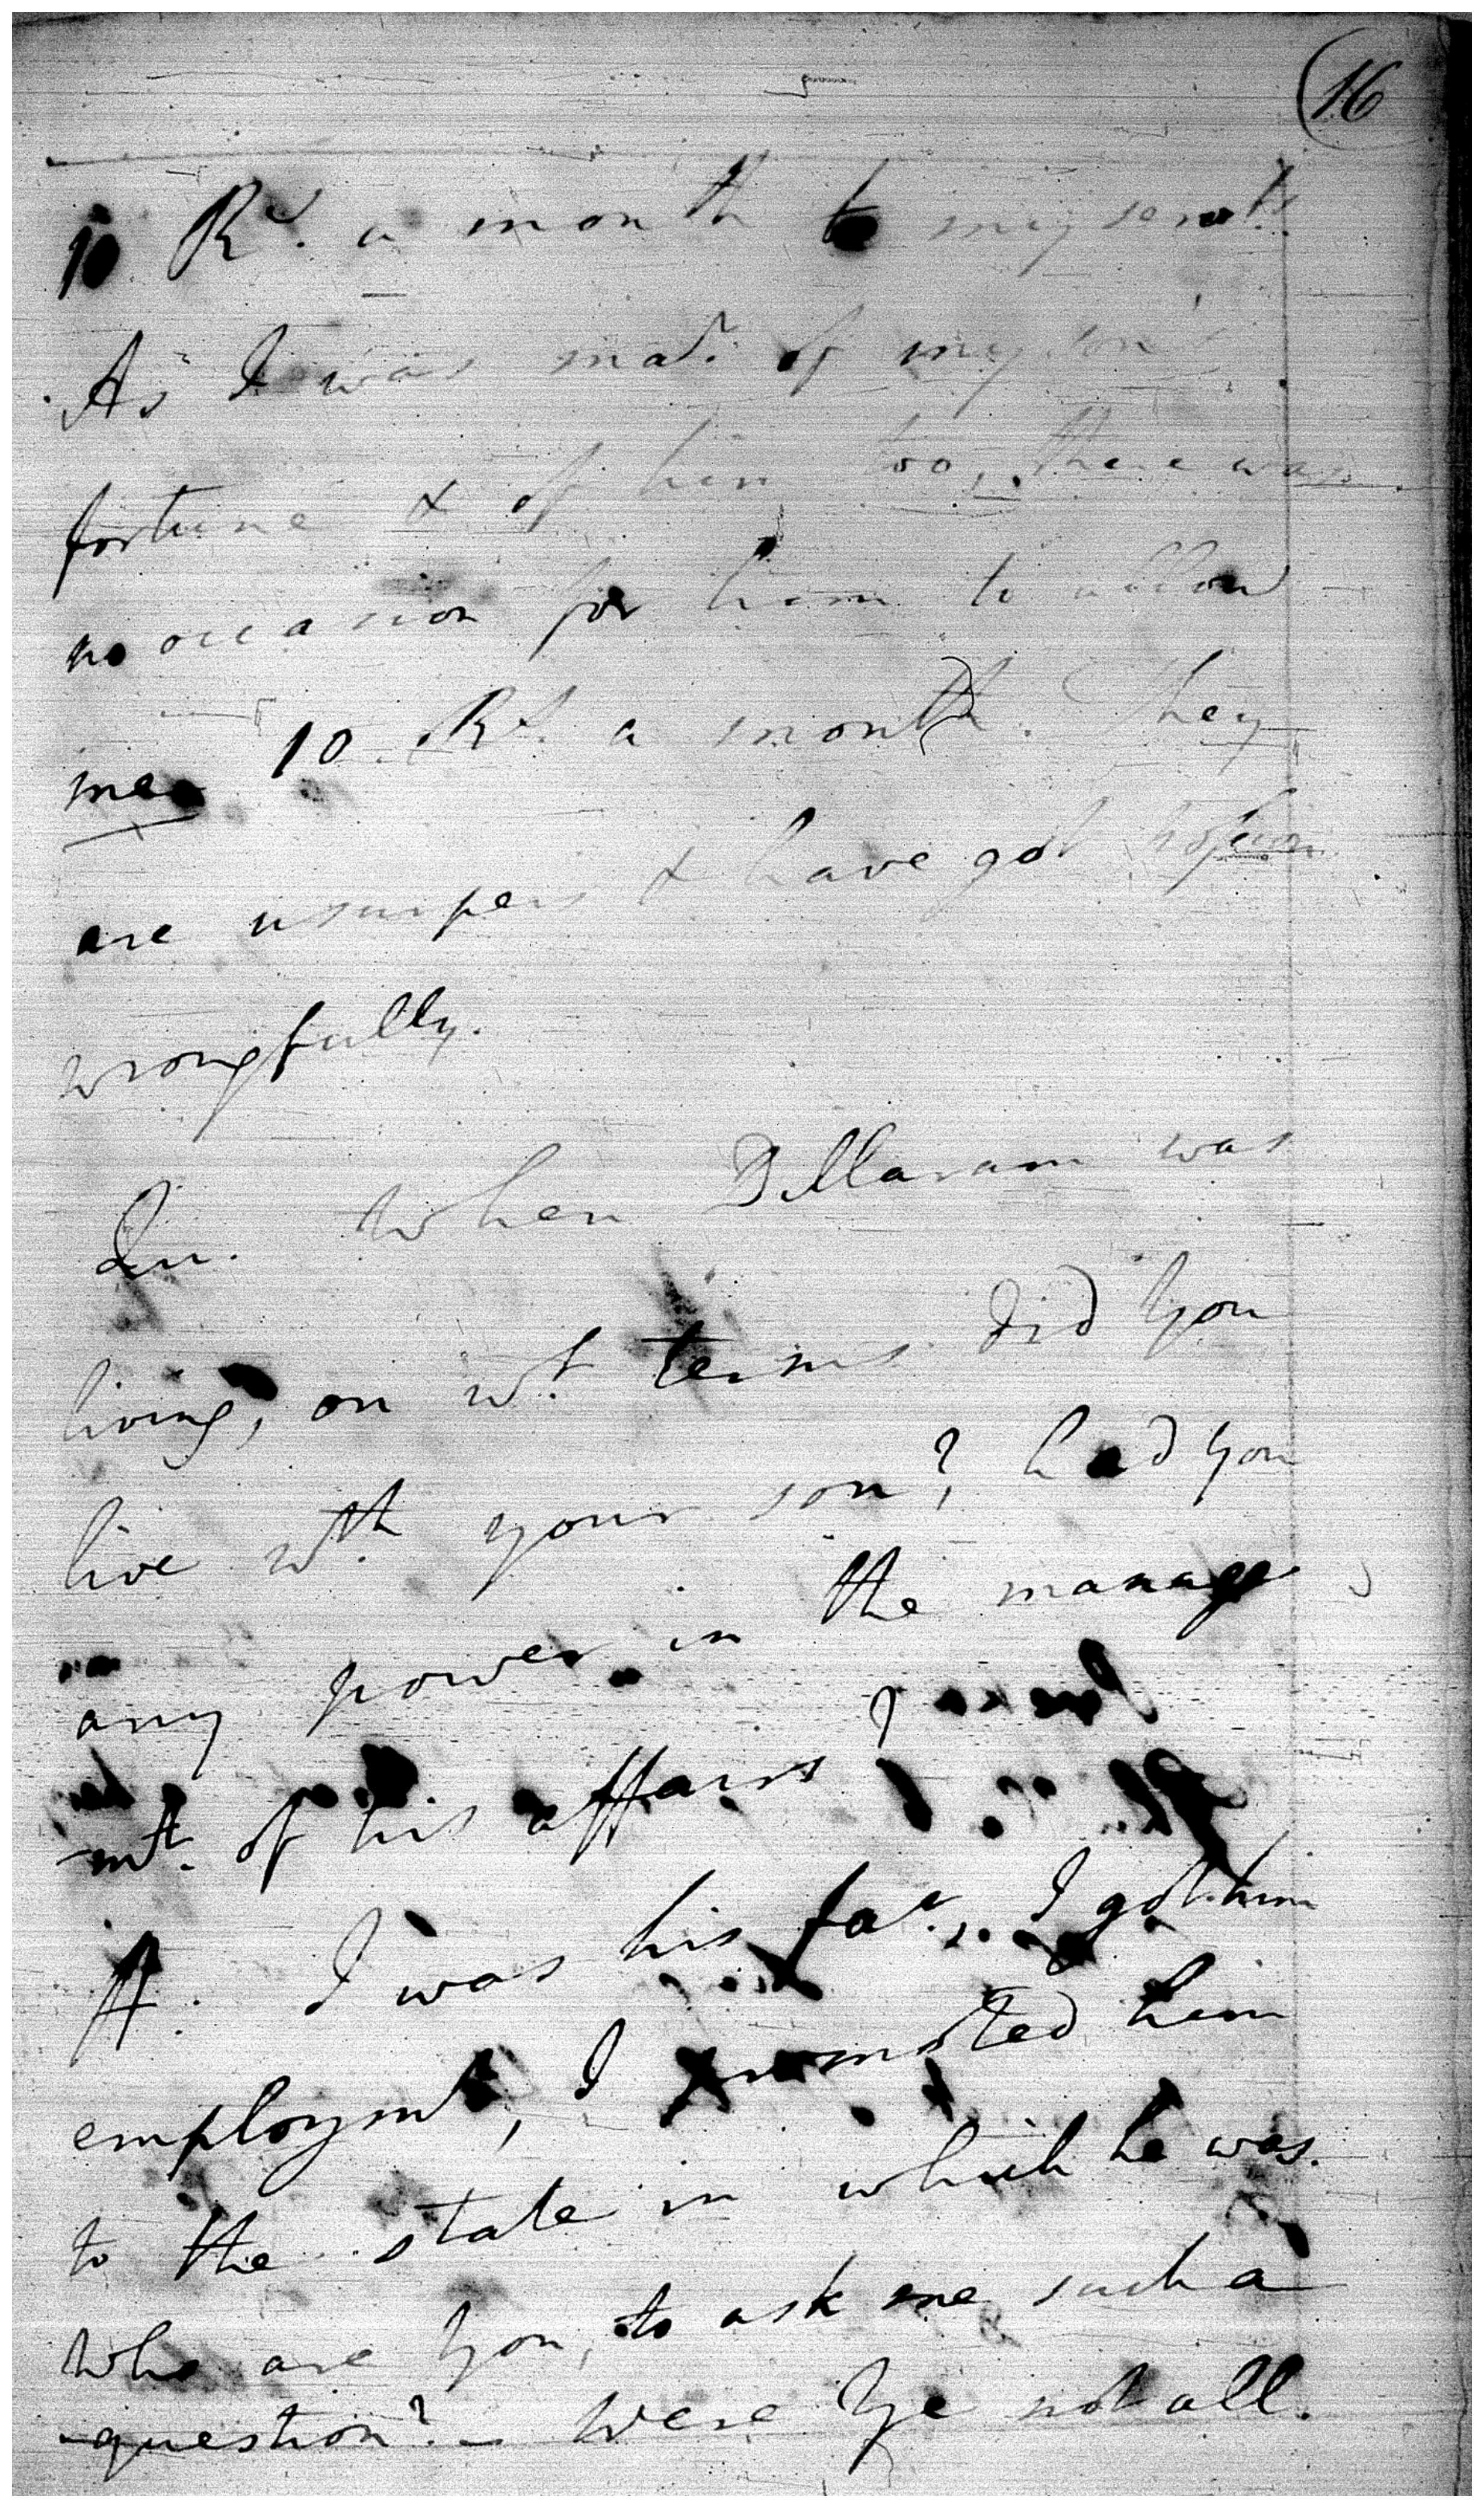 16
10 Rs. a month to my servts.
As I was mar. of my son's
fortune & of him too, there was
no occasion for him to allow
me 10 Rs. a month. They
are usurpers & have got
wrongfully.
Qu. When Bollaram was
living, on wt. terms did you
live wth. your son? had you
any power in the manage
-mt. of his affairs?
A. I was his far., I got him
employmt., I promoted him
to the state in which he was.
Who are you, to ask me such a
question? - Were Ye not all